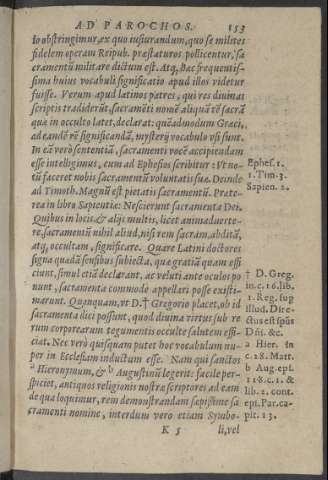 AD PAROCHOS. 153
lo obstringimur, ex quo iusiurandum, quo se milites
fidelem operam Reipub. præstaturos pollicentur, sa
cramentũ militare dictum est. Atq; hæc frequentis-
sima huius vocabuli significatio apud illos videtur
fuisse. Verum apud latinos patres, qui res diuinas
scriptis tradiderũt, sacramẽti nomẽ aliquã rẽ sacrã
quæ in occulto latet, declarat: quẽadmodum Græci,
ad eandẽ rẽ significandã, mysterij vocabulo vsi sunt.
In eã verò sententiã, sacramenti vocẽ accipiendam
esse intelligimus, cum ad Ephesios scribitur: Vt no-
tũ faceret nobis sacramentũ voluntatis suæ. Deinde
ad Timoth. Magnũ est pietatis sacramentũ. Præte-
rea in libro Sapientiæ: Nescierunt sacramenta Dei.
Quibus in locis & alijs multis, licet animaduerte-
re, sacramentũ nihil aliud, nisi rem sacram, abditã,
atq; occultam, significare. Quare Latini doctores
signa quædã sensibus subiecta, quæ gratiã quam effi
ciunt, simul etiã declarant, ac veluti ante oculos po
nunt, sacramenta commodè appellari posse existi-
marunt. Quanquam, vt D. † Gregorio placet, ob id
sacramenta dici possunt, quod diuina virtus sub re
rum corporearum tegumentis occultè salutem effi-
ciat. Nec verò quisquam putet hoc vocabulum nu-
per in Ecclesiam inductum esse. Nam qui sanctos
a Hieronymum, & b Augustinũ legerit: facile per-
spiciet, antiquos religionis nostræ scriptores ad eam
de qua loquimur, rem demonstrandam sæpissimè sa
cramenti nomine, interdum verò etiam Symbo-
K 5 li, vel
Ephes. 1.
1. Tim. 3.
Sapien. 2.
† D. Greg.
in c. 16. lib.
1. Reg. sup
illud. Dire-
ctus est spũs
Dñi. &c.
a Hier. in
c. 28. Matt.
b Aug. epi.
118. c. 1. &
lib. 2. cont.
epi. Par. ca-
pit. 13.